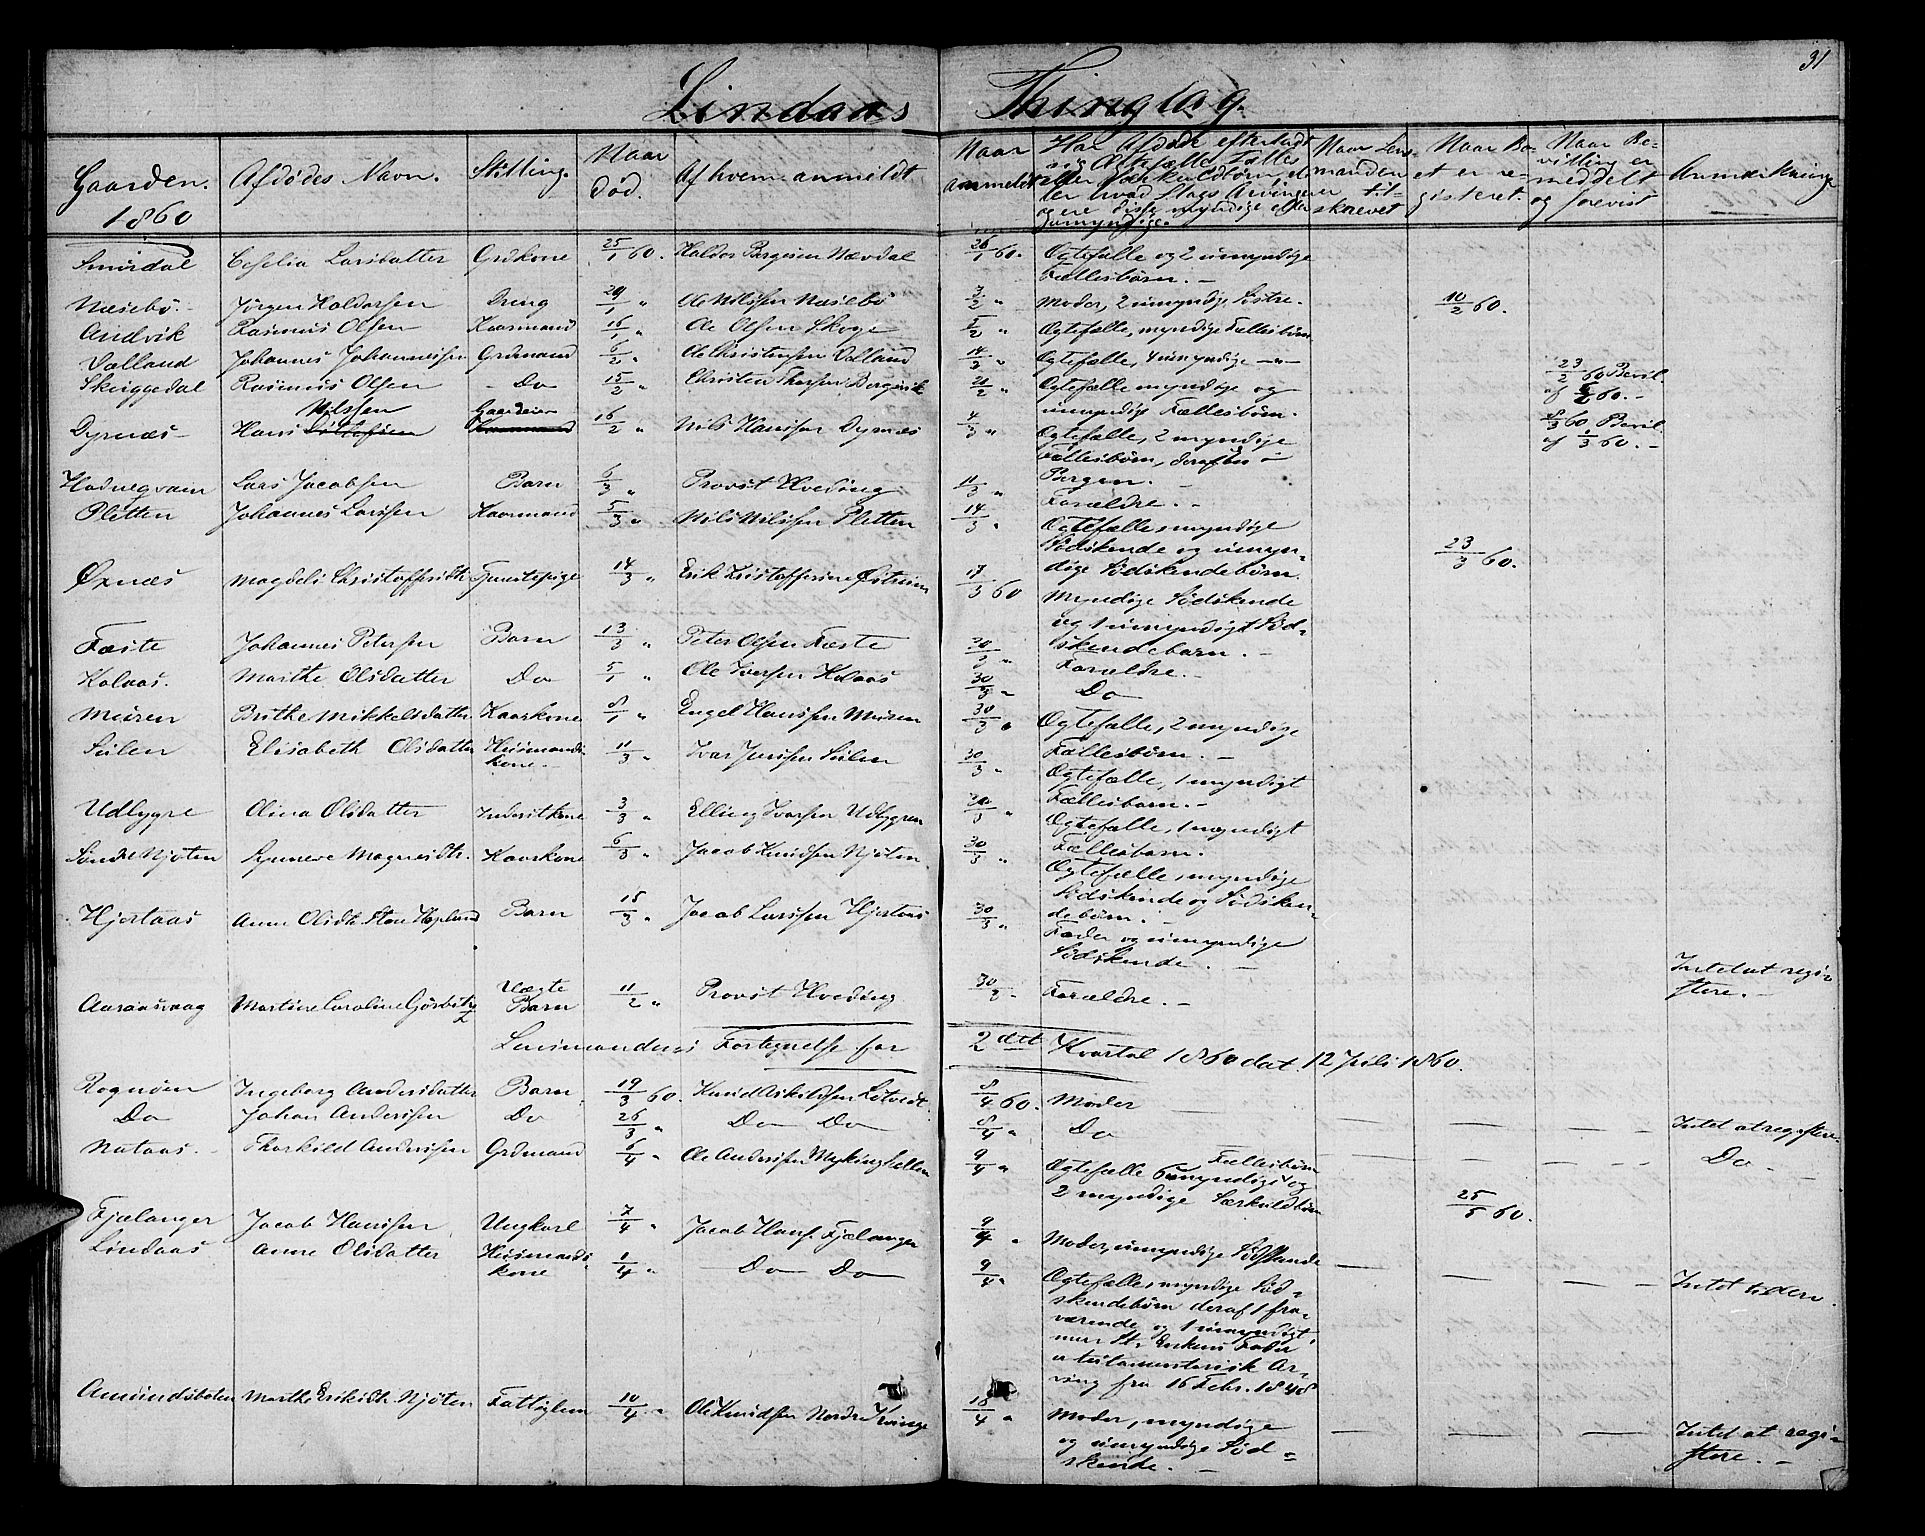 31
Lindaas Thinglag.
Gaarden. Afdødes Navn. Stilling. Naar død. Af hvem anmeldt Naar anmeldt Har Afdøde efterladt sig Ægtefælle, Fælles eller Særkuldbørn, eller hvad Slags Arvinger og ere disse myndige eller umyndige. Naar Lensmanden er tilskrevet Naar Boet er registeret. Naar Bevilling er meddelt og forevist Anmærkning
1860
Smørdal Cecelia Larsdatter Grdkone 25/1 60. Haldor Børgesen Nævdal 26/1 60. Ægtefælle og 2 umyndige
Fællesbørn. –
Næsebø. – Jørgen Haldorsen Dreng 29/1 " Ole Nilssen Næsebø 3/2 " Moder, 2 umyndige Søstre. 10/2 60.
Andvik Rasmus Olsen Kaarmand 16/1 " Ole Olsen Skoge 5/2 " Ægtefælle, myndige Fællesbørn
Valland Johannes Johannessen Grdmand 6/2 " Ole Christensen Valland 14/2 " Ægtefælle, 4 umyndige – " –
Skuggedal Rasmus Olsen – Do 15/2 " Christen Thorsen Bergsvik 21/2 " Ægtefælle myndige og 23/2 60 Bevil.
umyndige Fællesbørn. – af 5/2 60. –
Nilssen Gaardeier
Dyrnæs – Hans 16/2 " Nils Hanssen Dyrnæs 4/3 " Ægtefælle, 2 myndige 8/3 60 Bevil.
Fællesbørn, deraf en i af 1/3 60. –
Bergen. –
Hodnegvam Lars Jacobsen Barn 6/3 " Provst Hveding 11/3 " Forældre. –
Pletten Johannes Larssen Kaarmand 5/3 " Nils Nilssen Pletten 14/3 " Ægtefælle, myndige
Sødskende og umyn-
dige Sødskendebørn. 23/3 60.
Øxnæs Magdeli Christoffersdtr Tjenestepige 14/3 " Erik Kristoffersen Østreim 17/3 60 Myndige Sødskende
og 1 umyndigt Sød-
skendebarn. –
Fæste Johannes Petersen Barn 13/3 " Peter Olsen Fæste 20/3 " Forældre. –
Kolaas. Marthe Olsdatter Do 5/1 " Ole Iversen Kolaas 30/3 " Do
Muren Brithe Mikkelsdatter Kaarkone 8/1 " Engel Hanssen Muren 30/3 " Ægtefælle, 2 myndige
Fællesbørn. –
Seilen Elisabeth Olsdatter Huusmands kone. – 11/3 " Ivar Jenssen Seilen 30/3 " Ægtefælle, 1 myndigt
Fællesbarn. –
Udlygre Alina Olsdatter Inderstkone 3/3 " Elling Ivarsen Udlygren 30/3 " Ægtefælle, 1 myndigt
Fællesbarn.
Søndre Njøten Synneve Magnesdtr. Kaarkone 6/3 " Jacob Knudsen Njøten 30/3 " Ægtefælle, myndige
Sødskende og Sødsken-
debørn. –
Hjortaas Anne Olsdtr Hopland Barn 15/3 " Jacob Larssen Hjortaas 30/3 " Fader og umyndige
Sødskende. –
Aaraasvaag Martine Caroline Uægte Barn 11/2 " Provst Hveding 30/3 " Forældre. – Intet at regi-
stere. –
Lensmandens Fortegnelse for 2det Kvartal 1860 dat. 12 Juli 1860.
Rognøen Ingeborg Andersdatter Barn 19/3 60. Knud Askildsen Løtvedt 8/4 60. Moder
Do Johan Anderssen Do 26/3 " Do Do 8/4 " Do Intet at registere
Nataas. – Thorkild Anderssen Grdmand 6/4 " Ole Anderssen Myking 9/4 " Fællesbørn Do –
Ægtefælle 6 myndige og
2 myndige Særkuldbørn 25/5 60.
Fjælanger Jacob Hanssen Ungkarl 7/4 " Jacob Hans. Fjælanger 9/4 " Moder, umyndige Sødskende
Lindaas Anne Olsdatter Huusmands kone 1/4 " Do Do 9/4 " Ægtefælle, myndige Sød- Intet
skendebørn deraf 1 fra-
værende og 1 umyndigt,
er testamenterisk Ar-
ving fra 16 Febr. 1848
Amundsboten Marthe Eriksdtr. Njøten Fattiglem 10/4 " Ole Knudsen Nordre Kvinge 18/4 " Moder, myndige
og umyndige Sød- Intet at regi-
skende. – stere. –